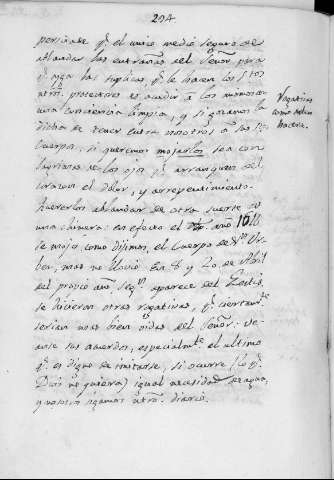 294
persuade q.e el unico medio seguro de
ablandar las entrañas del Señor para
q.e oiga las suplicas q.e le hacen los S.tos
ntr̃os protectores es acudir a los
una conciencia limpia, y si tenemos la
dicha de tener entre nosotros a sus S.tos
Cuerpos, si queremos mojarlos sea con
lagrimas de los ojos q.e arranquen del
corazon el dolor, y arrepentimiento.
Quererlos ablandar de otra suerte es
una chimera: en efecto el año 16
se mojo, como dijimos, el Cuerpo de
mas no llovió. En 8 y 20 de Abril
del propio año seg.n aparece del
se hicieron otras rogativas, q.e ciertam.te
serian mas bien oidas del Señor. Ve
anse sus acuerdos, especialm.te el ultimo
q.e es digno de imitarse, si ocurre (lo q.e
Dios no quiera) igual necesidad de agua,
y nosotros sigamos ntr̃o diario.
Rogativas
como deben
hacerse.